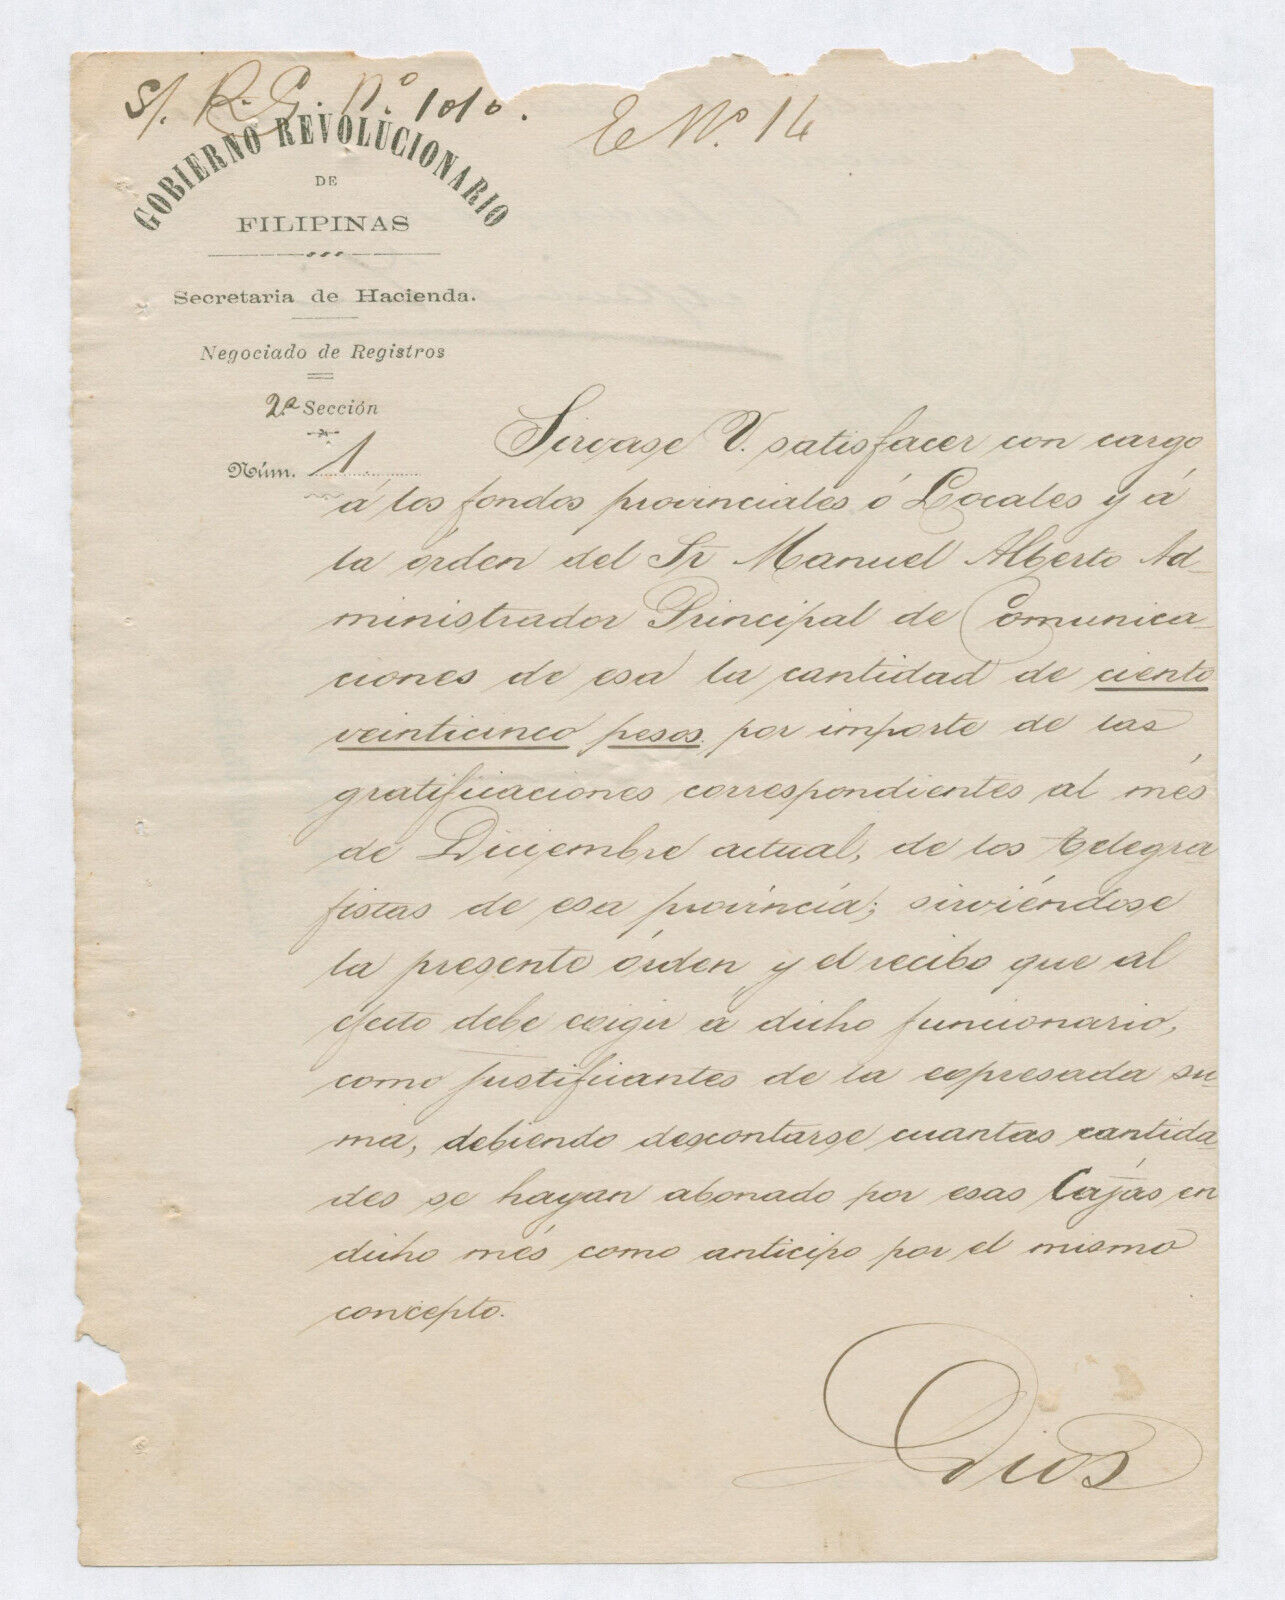 S/. R. G. Nº 1010.
E Nº 14
GOBIERNO REVOLUCIONARIO
DE
FILIPINAS
Secretaria de Hacienda.
Negociado de Registros
2ª Sección
Núm. 1.
Sirvase V. satisfacer con cargo
á los fondos provinciales ó Locales y á
la órden del Sr Manuel Alberto Ad-
ministrador Principal de Comunica-
ciones de esa la cantidad de ciento
veinticinco pesos. por importe de las
gratificaciones correspondientes al més
de Diciembre actual, de los telegra
fistas de esa província; sirviéndose
la presente órden y el recibo que al
efecto debe exigir a dicho funcionario,
como justificantes de la expresada su-
ma, debiendo descontarse cuantas cantida-
des se hayan abonado por esas Cajas en
dicho més como anticipo por el mismo
concepto.
Dios